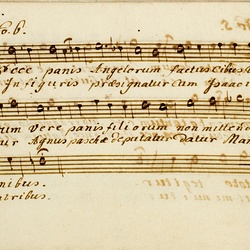 No. 6.
Ecce panis Angelorum factus cibus
In figuris præsignatur cum Isaac i
um vere panis filiorum non mittend
ur Agnus paschæ deputatur datur Man
nibus.
atribus.